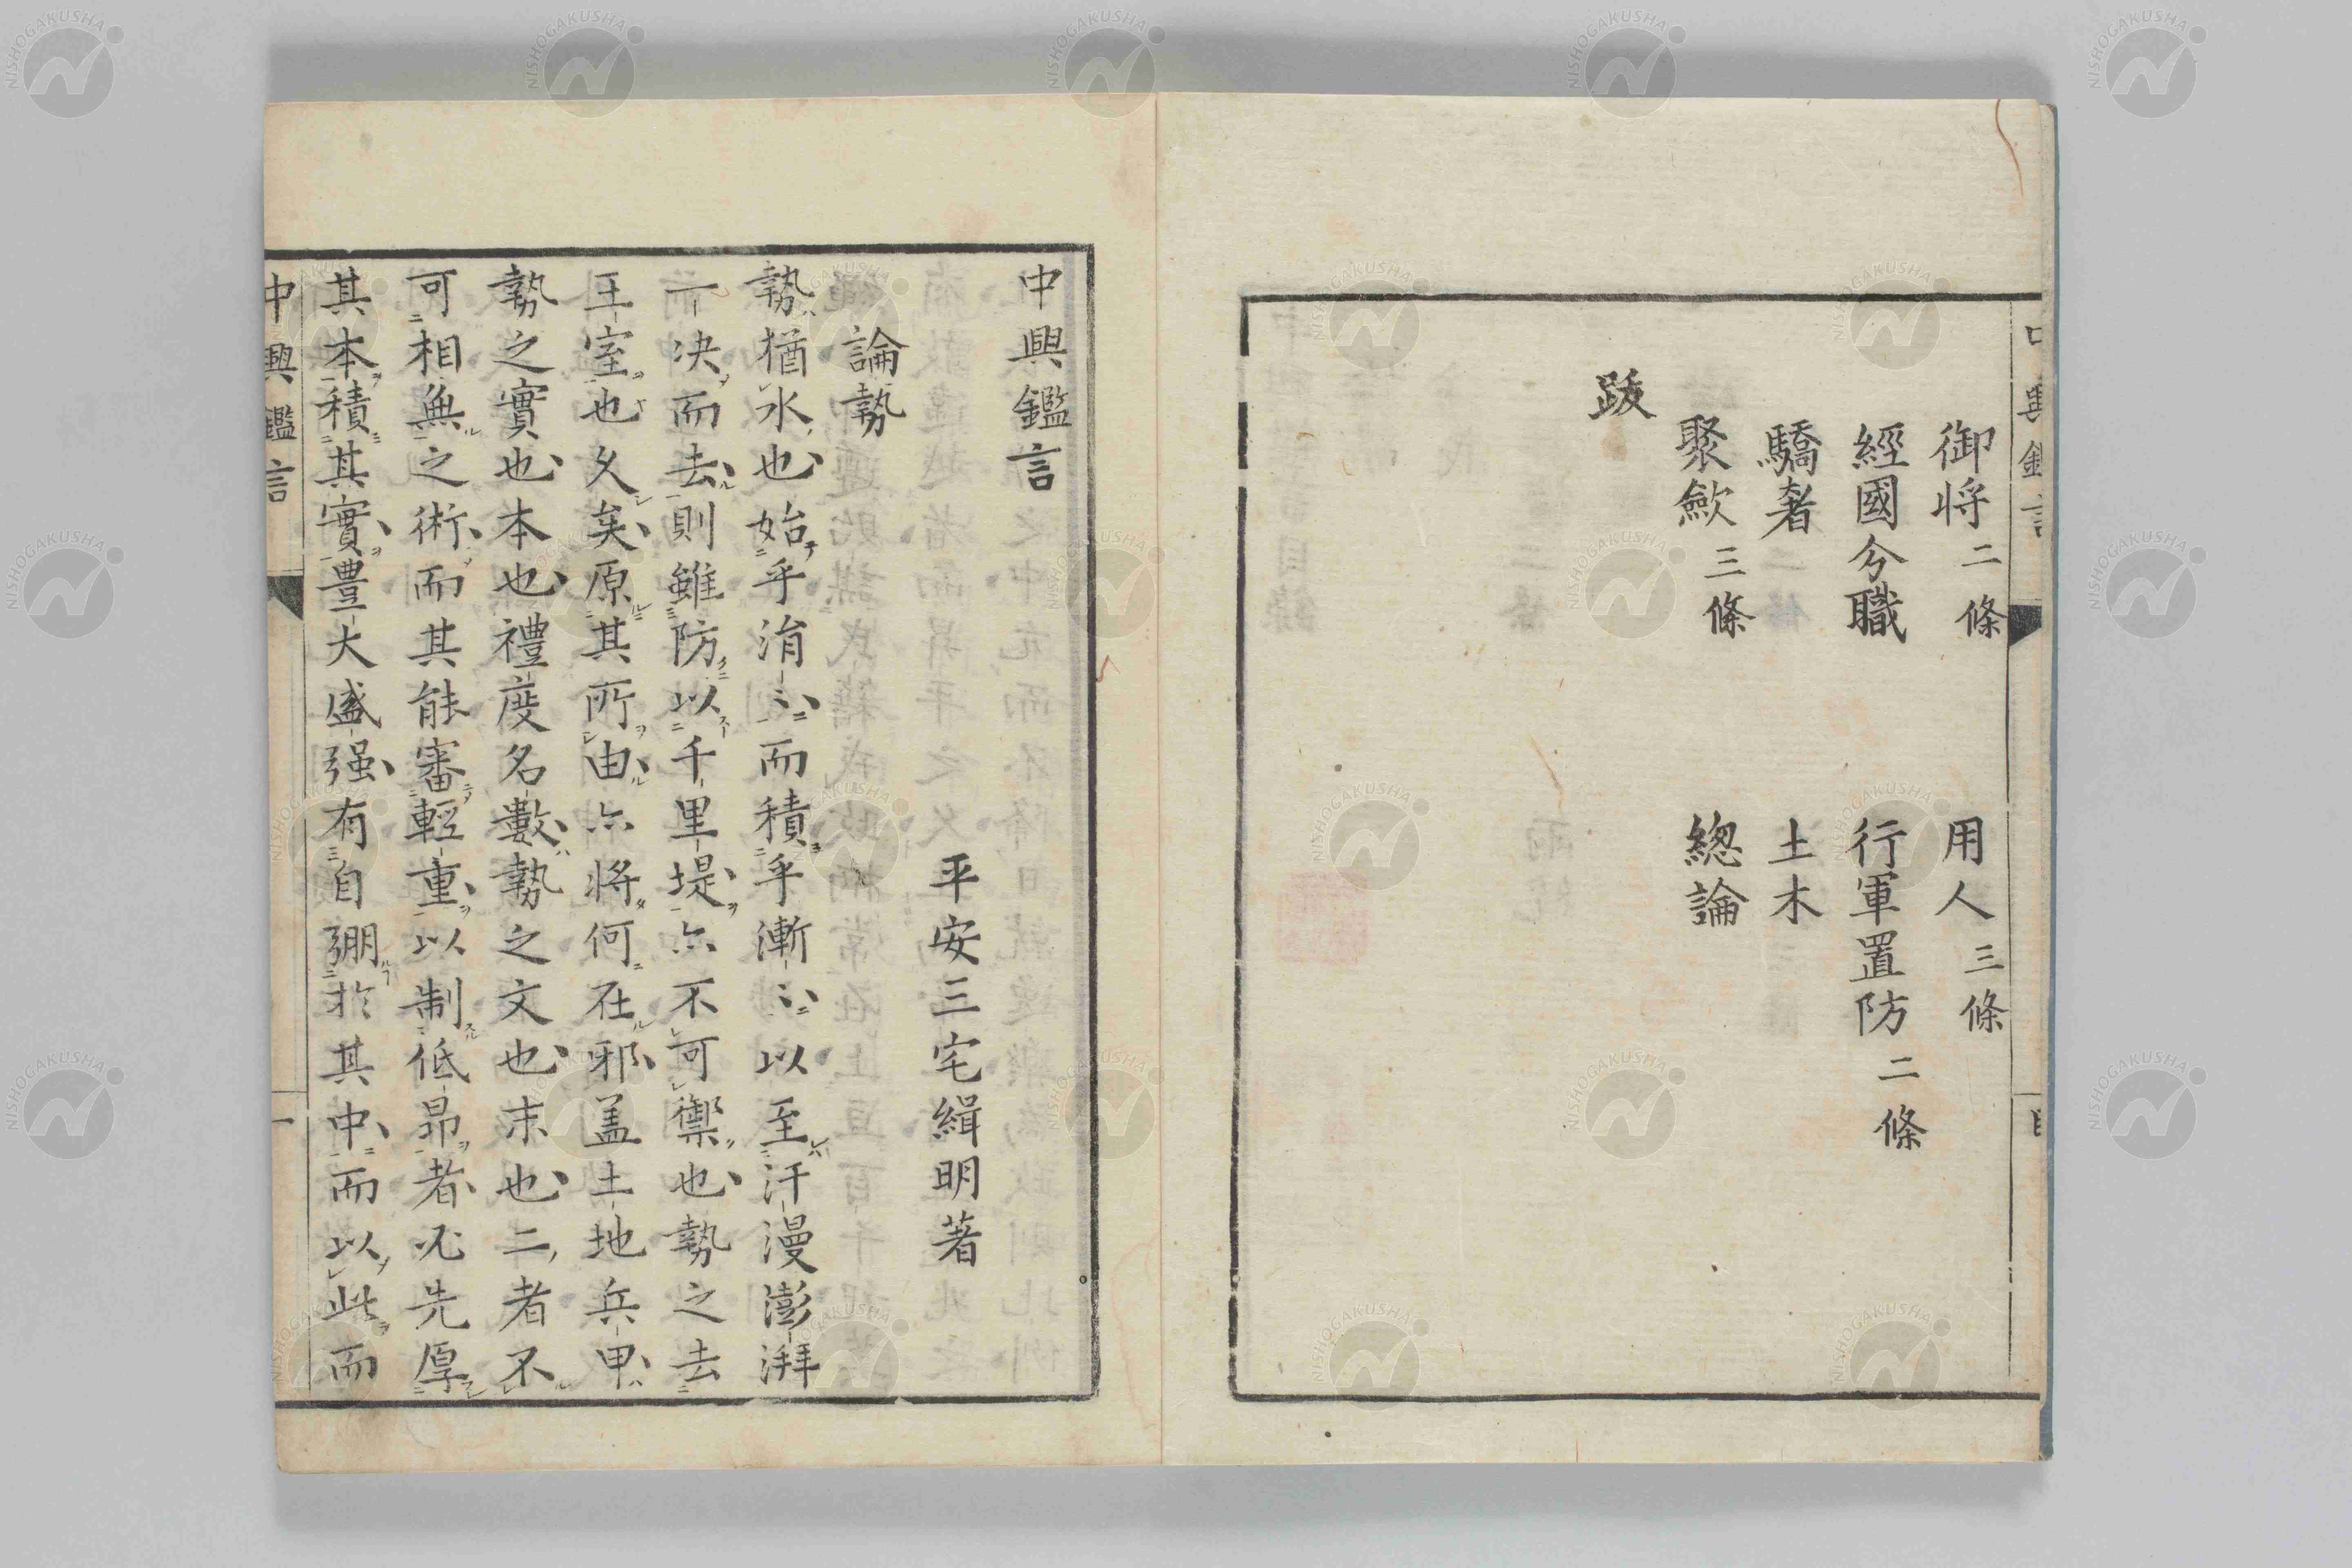 御将二條
用人三條
經國分職
行軍置防二條
驕奢二條
土木
聚歛三條
總論
跋
中興鑑言
平安三宅緝明著
論勢
勢猶水也始乎涓〻而積乎漸〻以至汗漫澎湃
一决而去則雖防以千里堤亦不可禦也勢之去
王室也久矣原其所由亦將何在邪盖土地兵甲
勢之實也本也禮度名數勢之文也末也二者不
可相無之術而其能審輕重以制低昂者必先厚
其本積其實豊大盛强有自弸於其中而以此而
中興鑑言
一
NISHOGAKUSHA